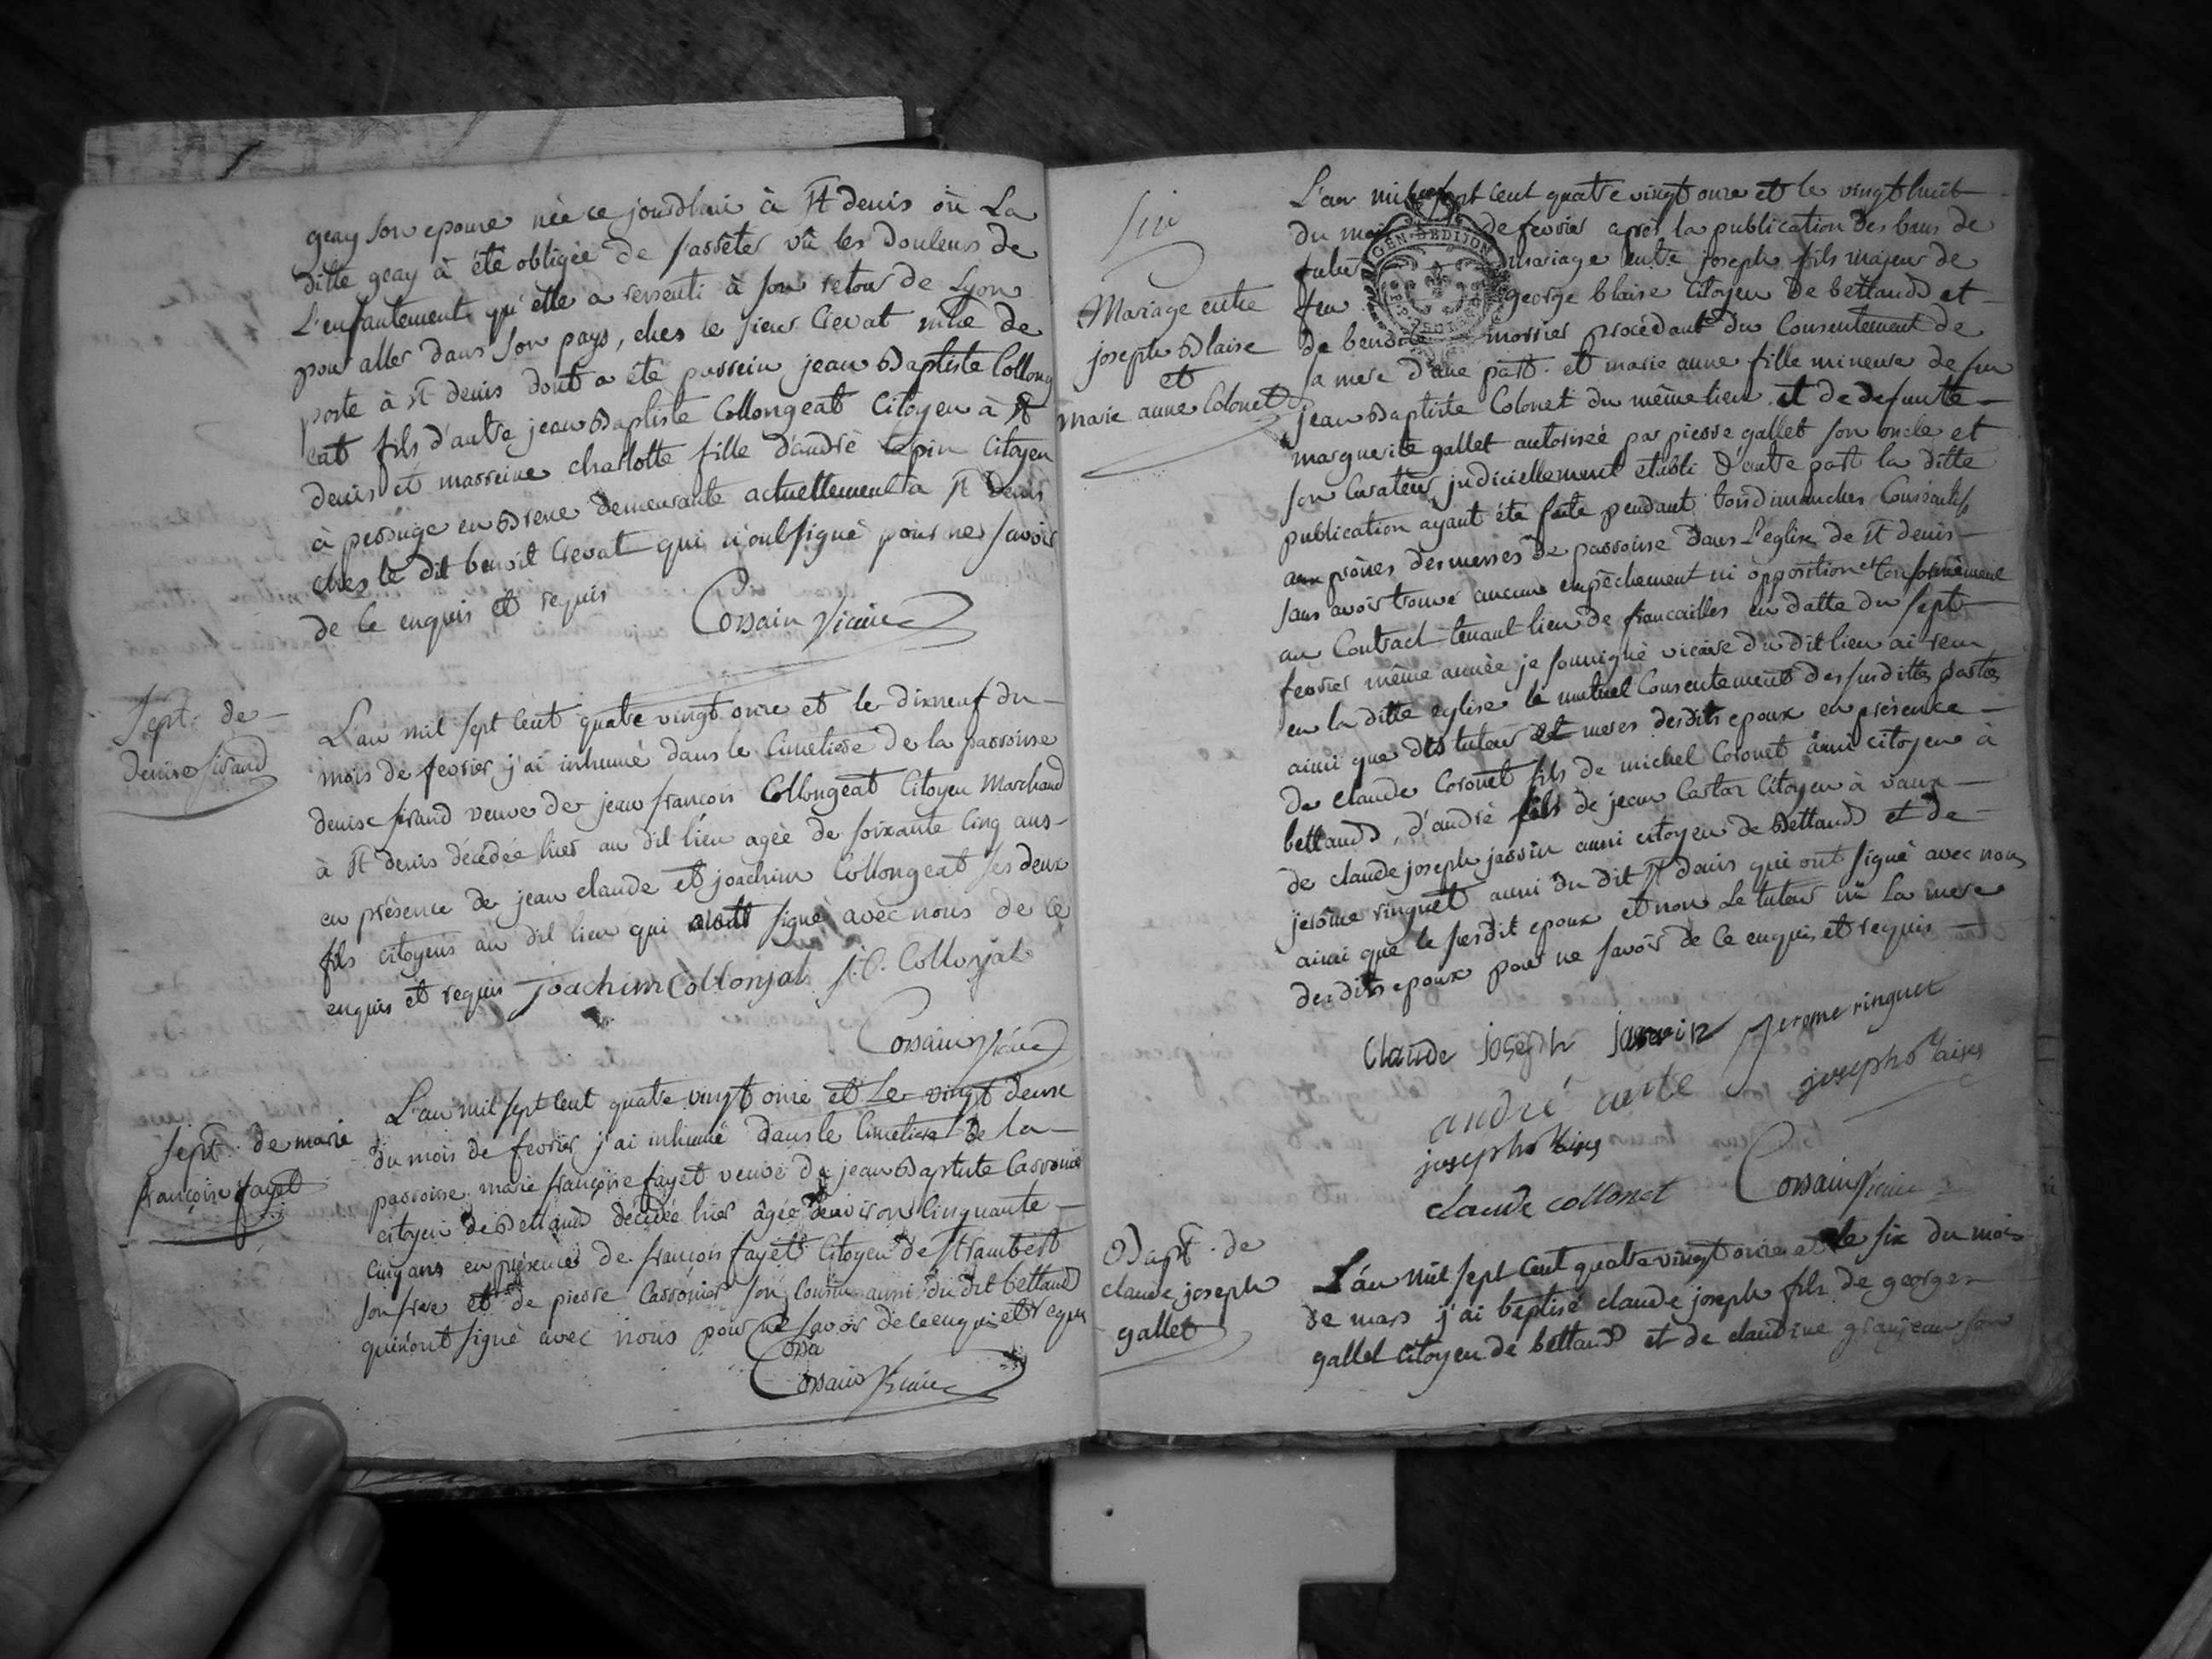 geay son epouse née ce jourdhui à St denis où La
ditte geay à été obligée de s'arrèter vû les douleurs de
L'enfantement qu'elle a ressenti à son retour de Lyon
pour aller dans son pays, ches le sieur Crevat mtre de
poste à St denis dont a été parrein jean Baptiste Collong
eat fils d'autre jean Baptiste Collongeat Citoyen à St
denis et marreine charlotte fille d'andré tepin Citoyen
à peronge en Bresse demeurante actuellement a St denis
ches le dit benoit Crevat qui n'ont signé pour ne savoir
de ce enquis et requis
Corsain Vicaire
Sept: de
Denise sirand
L'an mil sept cent quatre vingt onze et le dixneuf du
mois de fevrier j'ai inhumé dans le Cimetiere de la parroisse
denise sirand veuve de jean françois Collongeat Citoyen Marchand
à St denis décédée hier au dit lieu agée de soixante cinq ans
en présence de jean claude et joachim Collongeat ses deux
fils citoyens au dit lieu qui ont signé avec nous de ce
enquis et requis joachim Collonjat j. C. Collonjat
Corsain Vicaire
Sept: de marie
françoise fayet
L'an mil sept cent quatre vingt onze et Le vingt deux
du mois de fevrier j'ai inhumé dans le Cimetiere de la
parroisse marie françoise fayet veuve de jean Baptiste Carronier
citoyen de Bettand décédée hier âgée d'environ cinquante
cinq ans en présence de françois fayet Citoyen de St rambert
son frere et de pierre Carronier son Cousin aussi du dit bettand
qui n'ont signé avec nous pour ne savoir de ce enquis et requis
Corsain Vicaire
Mariage entre
joseph Blaise
et
marie anne Colonet
L'an mil sept cent quatre vingt onze et le vingt huit
du mois de fevrier après la publication des bans de
futur mariage entre joseph fils majeur de
feu george blaise Citoyen de bettand et
de benoite morrier procédant du Consentement de
sa mere d'une part. et marie anne fille mineure de feu
jean Baptiste Colonet du même lieu et de defunte
marguerite gallet autorisée par pierre gallet son oncle et
son Curateur judiciellement établi d'autre part la ditte
publication ayant été faite pendant trois dimanches Consécutifs
aux prônes des messes de parroisse dans L'eglise de St denis
sans avoir trouvé aucun empêchement ni opposition et Conformément
au Contract tenant lieu de fiancailles en datte du sept
fevrier même année je soussigné vicaire du dit lieu ai recu
en la ditte eglise le mutuel Consentement des susdittes parties
ainsi que des tuteur et meres desdits epoux en présence
de claude Coronet fils de michel Coronet aussi citoyen à
bettand, d'andré fils de jean Cartar Citoyen à vaux
de claude joseph jarvin aussi citoyen de Bettand et de
jerôme ringuet aussi du dit St denis qui ont signé avec nous
ainsi que le susdit epoux et non Le tuteur ni La mere
desdits epoux pour ne savoir de ce enquis et requis
Claude joseph jarvin Jerome ringuet
andré carte joseph blaises
joseph blaises
claude collonet Corsain Vicaire
Bapt. de
claude joseph
gallet
L'an mil sept cent quatre vingt onze et le six du mois
de mars j'ai baptisé claude joseph fils de george
gallet citoyen de bettand et de claudine granjean son
GEN. DE DIJON